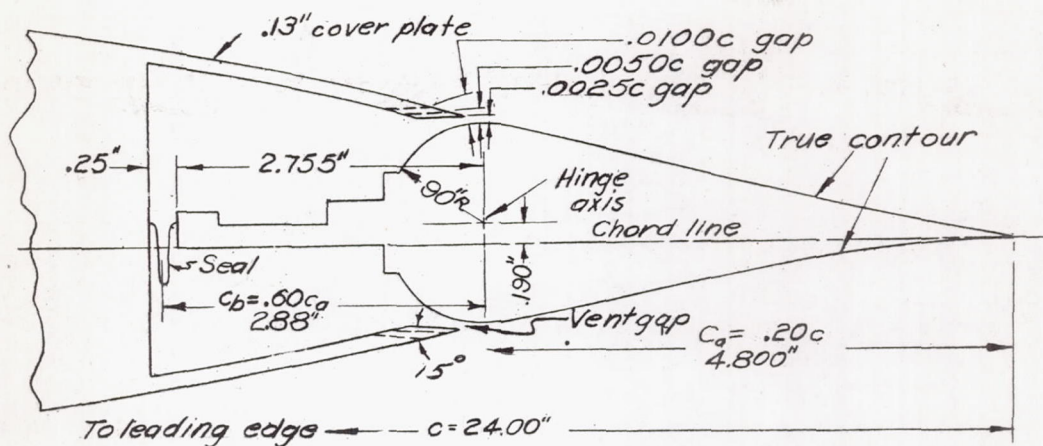 .13" cover plate
.0100c gap
.0050c gap
.0025c gap
True contour
.25"
2.755"
.90"R
Hinge
axis
Chord line
.190"
Seal
cb = .60ca
2.88"
Vent gap
Ca = .20c
4.800"
15°
To leading edge
c = 24.00"